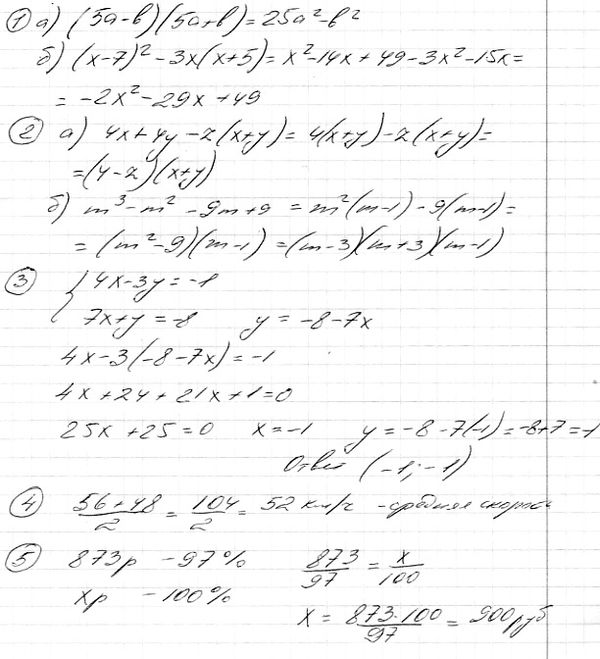 ① а) (5a-b)(5a+b)=25a²-b²
б) (x-7)²-3x(x+5)=x²-14x+49-3x²-15x=
=-2x²-29x+49
② а) 4x+4y-z(x+y)=4(x+y)-z(x+y)=
=(4-z)(x+y)
б) m³-m²-9m+9=m²(m-1)-9(m-1)=
=(m²-9)(m-1)=(m-3)(m+3)(m-1)
③ { 4x-3y=-1
7x+y=-8 y=-8-7x
4x-3(-8-7x)=-1
4x+24+21x+1=0
25x+25=0 x=-1 y=-8-7(-1)=-8+7=-1
Ответ (-1;-1)
④ 56+48/2 = 104/2 = 52 км/ч - средняя скорость
⑤ 873р - 97% 873/97 = x/100
xр - 100%
x = 873·100/97 = 900 руб